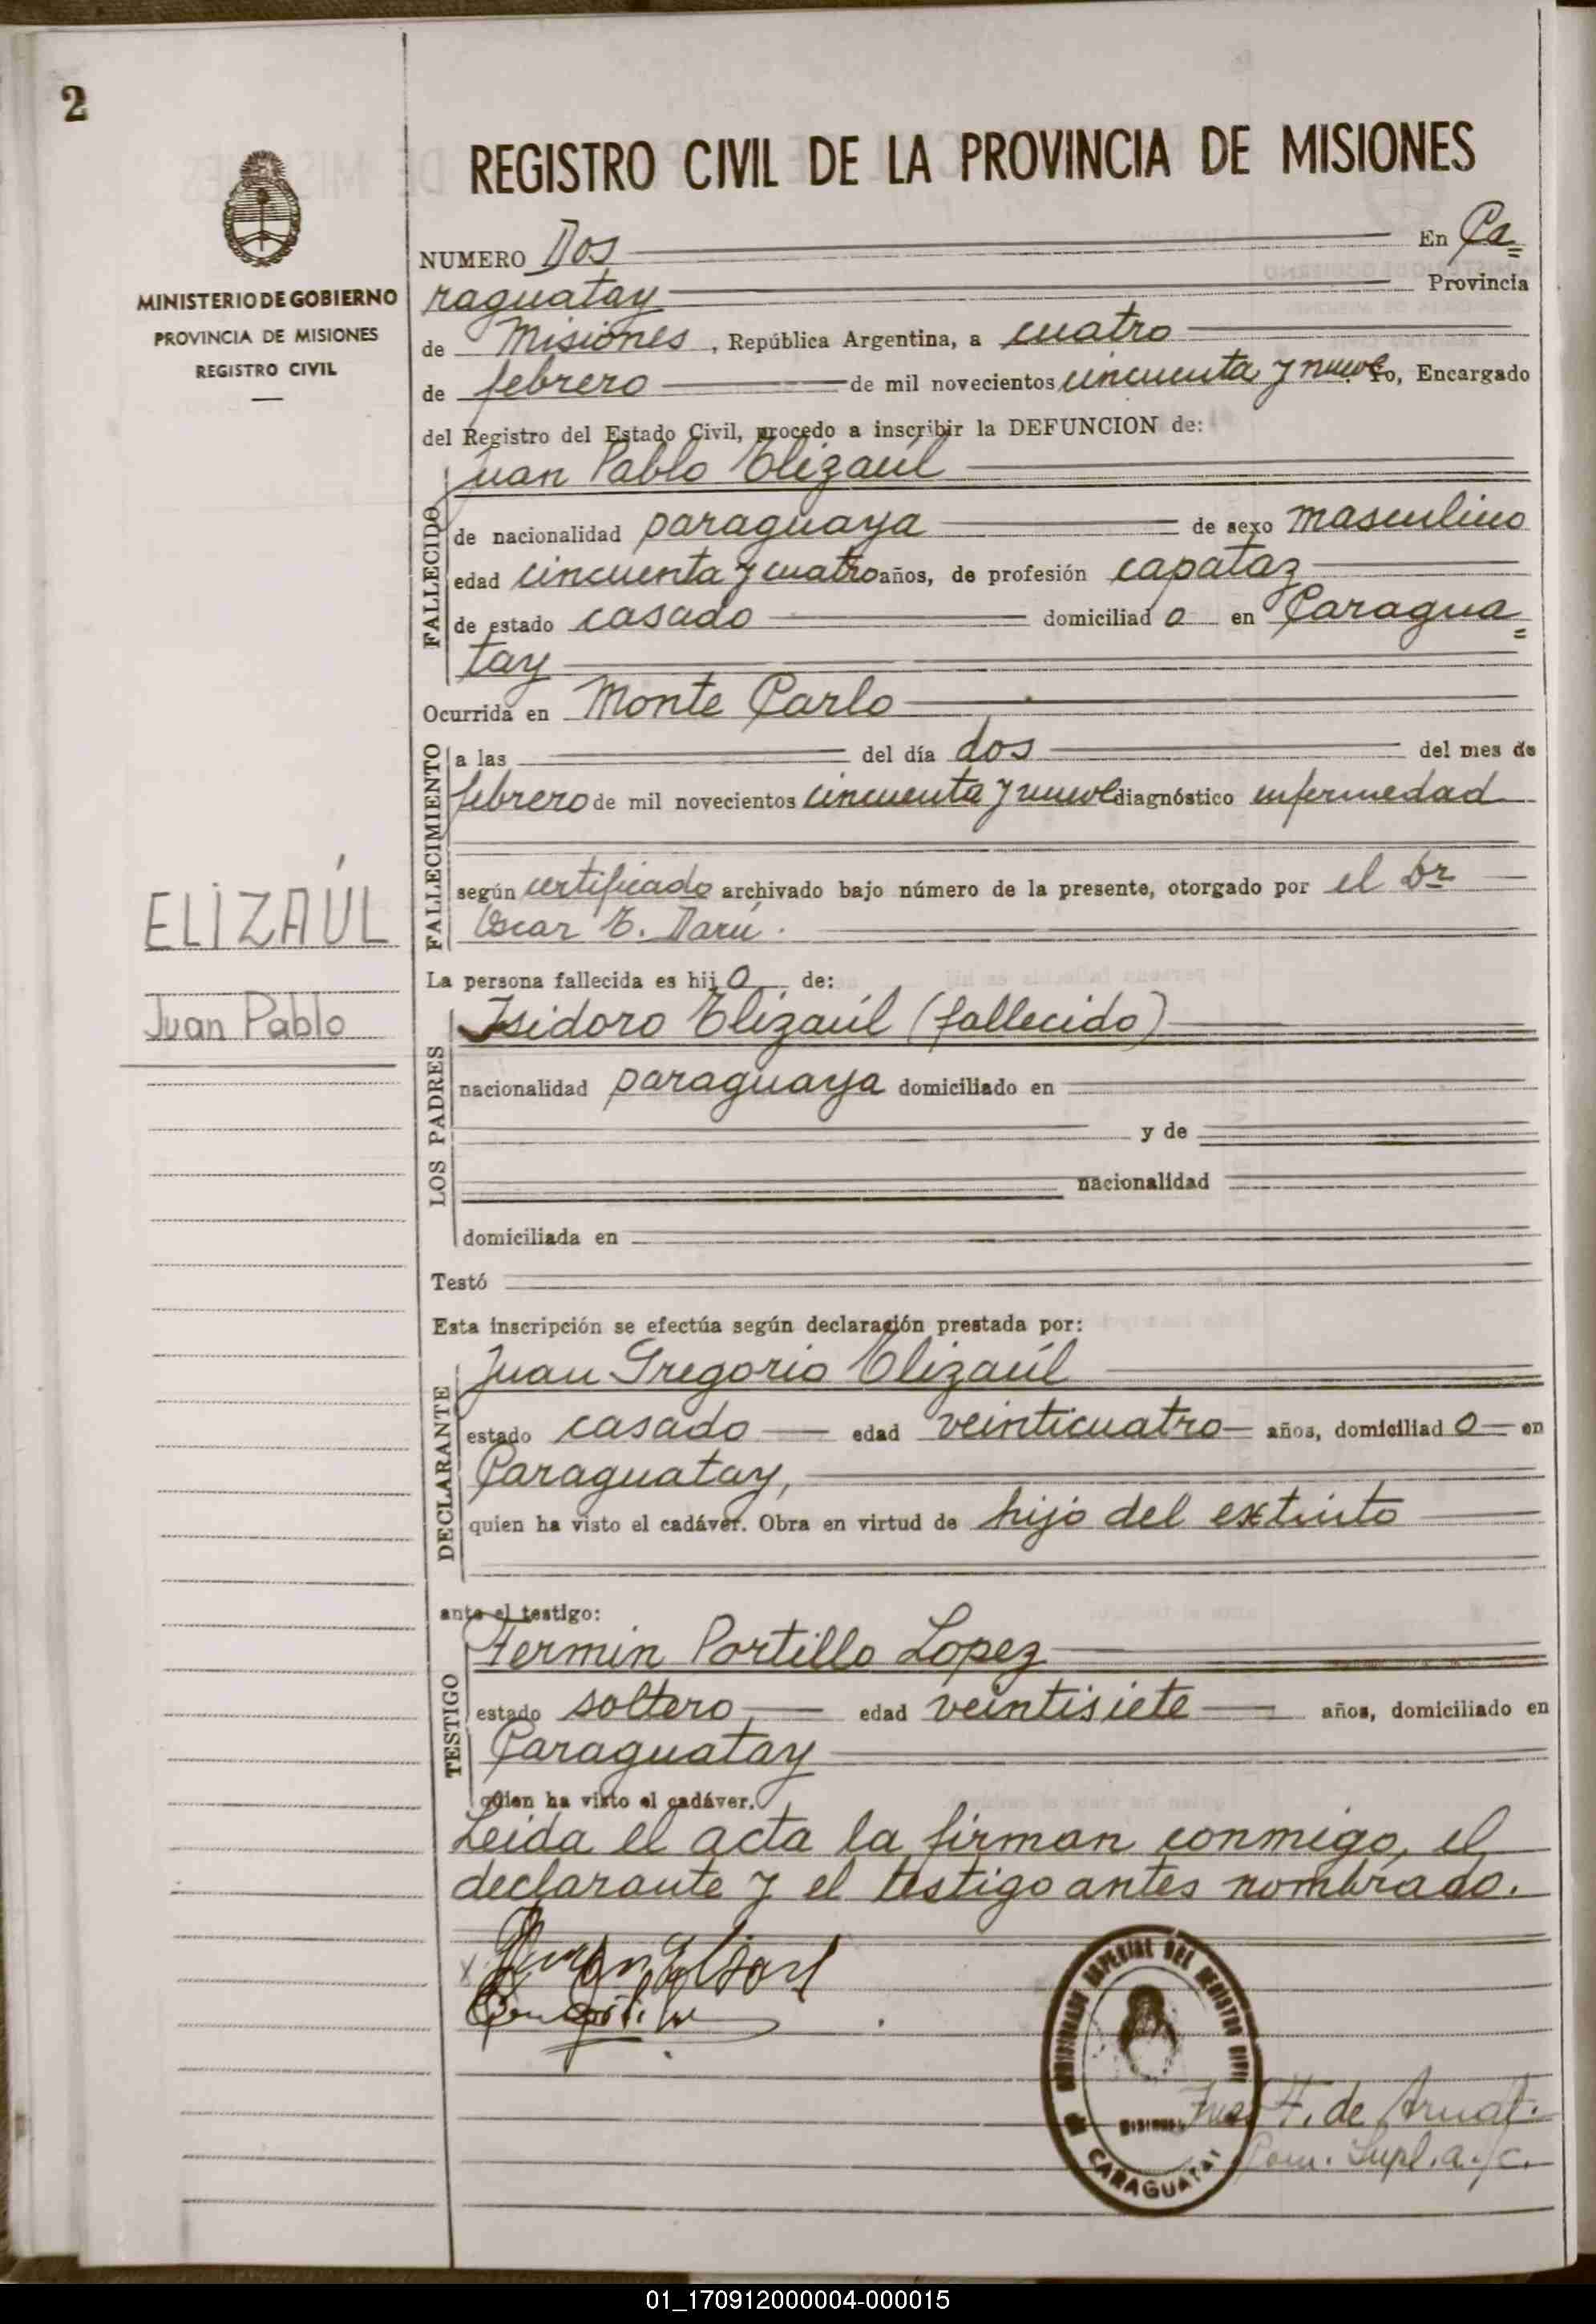 2
REGISTRO CIVIL DE LA PROVINCIA DE MISIONES
MINISTERIO DE GOBIERNO
PROVINCIA DE MISIONES
REGISTRO CIVIL
NUMERO Dos En Ca=
raguatay Provincia
de Misiones, República Argentina, a cuatro
de febrero de mil novecientos cincuenta y nueve Yo, Encargado
del Registro del Estado Civil, procedo a inscribir la DEFUNCION de:
Juan Pablo Elizaúl
FALLECIDO
de nacionalidad paraguaya de sexo masculino
edad cincuenta y cuatro años, de profesión capataz
de estado casado domiciliado en Caragua=
tay
Ocurrida en Monte Carlo
FALLECIMIENTO
a las del día dos del mes de
febrero de mil novecientos cincuenta y nueve diagnóstico enfermedad
según certificado archivado bajo número de la presente, otorgado por el Dr
Oscar E. Darú.
ELIZAÚL
Juan Pablo
La persona fallecida es hijo de:
LOS PADRES
Isidoro Elizaúl (fallecido)
nacionalidad paraguaya domiciliado en
y de
nacionalidad
domiciliada en
Testó
Esta inscripción se efectúa según declaración prestada por:
DECLARANTE
Juan Gregorio Elizaúl
estado casado edad veinticuatro años, domiciliado en
Caraguatay,
quien ha visto el cadáver. Obra en virtud de hijo del extinto
ante el testigo:
TESTIGO
Fermin Portillo Lopez
estado soltero edad veintisiete años, domiciliado en
Caraguatay
quien ha visto el cadáver.
Leida el acta la firman conmigo, el
declarante y el testigo antes nombrado.
DEL REGISTRO CIVIL
MISIONES
CARAGUATAY
F. de Arual.
Com. Supl. a./c.
01_170912000004-000015